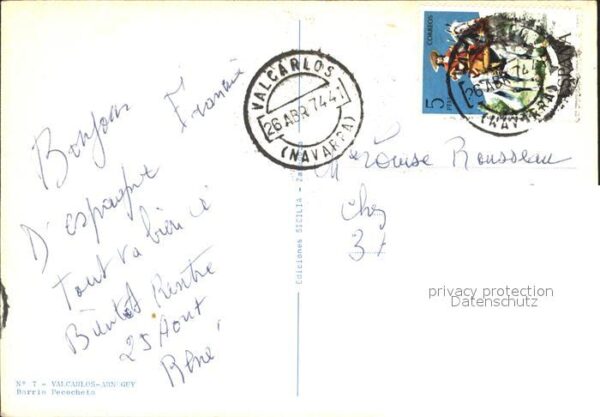 Bonjour
D'espagne
Tout va bien ici
Bientot Rentre
25 Aout
René
Nº 7 - VALCARLOS-ARNEGUY
Barrio Pecocheta
Ediciones SICILIA - Zaragoza
VALCARLOS
26 ABR 74 4
(NAVARRA)
CORREOS
5 PTAS
ESPAÑA
26 ABR 74
(NAVARRA)
Louise Rousseau
chez
privacy protection
Datenschutz